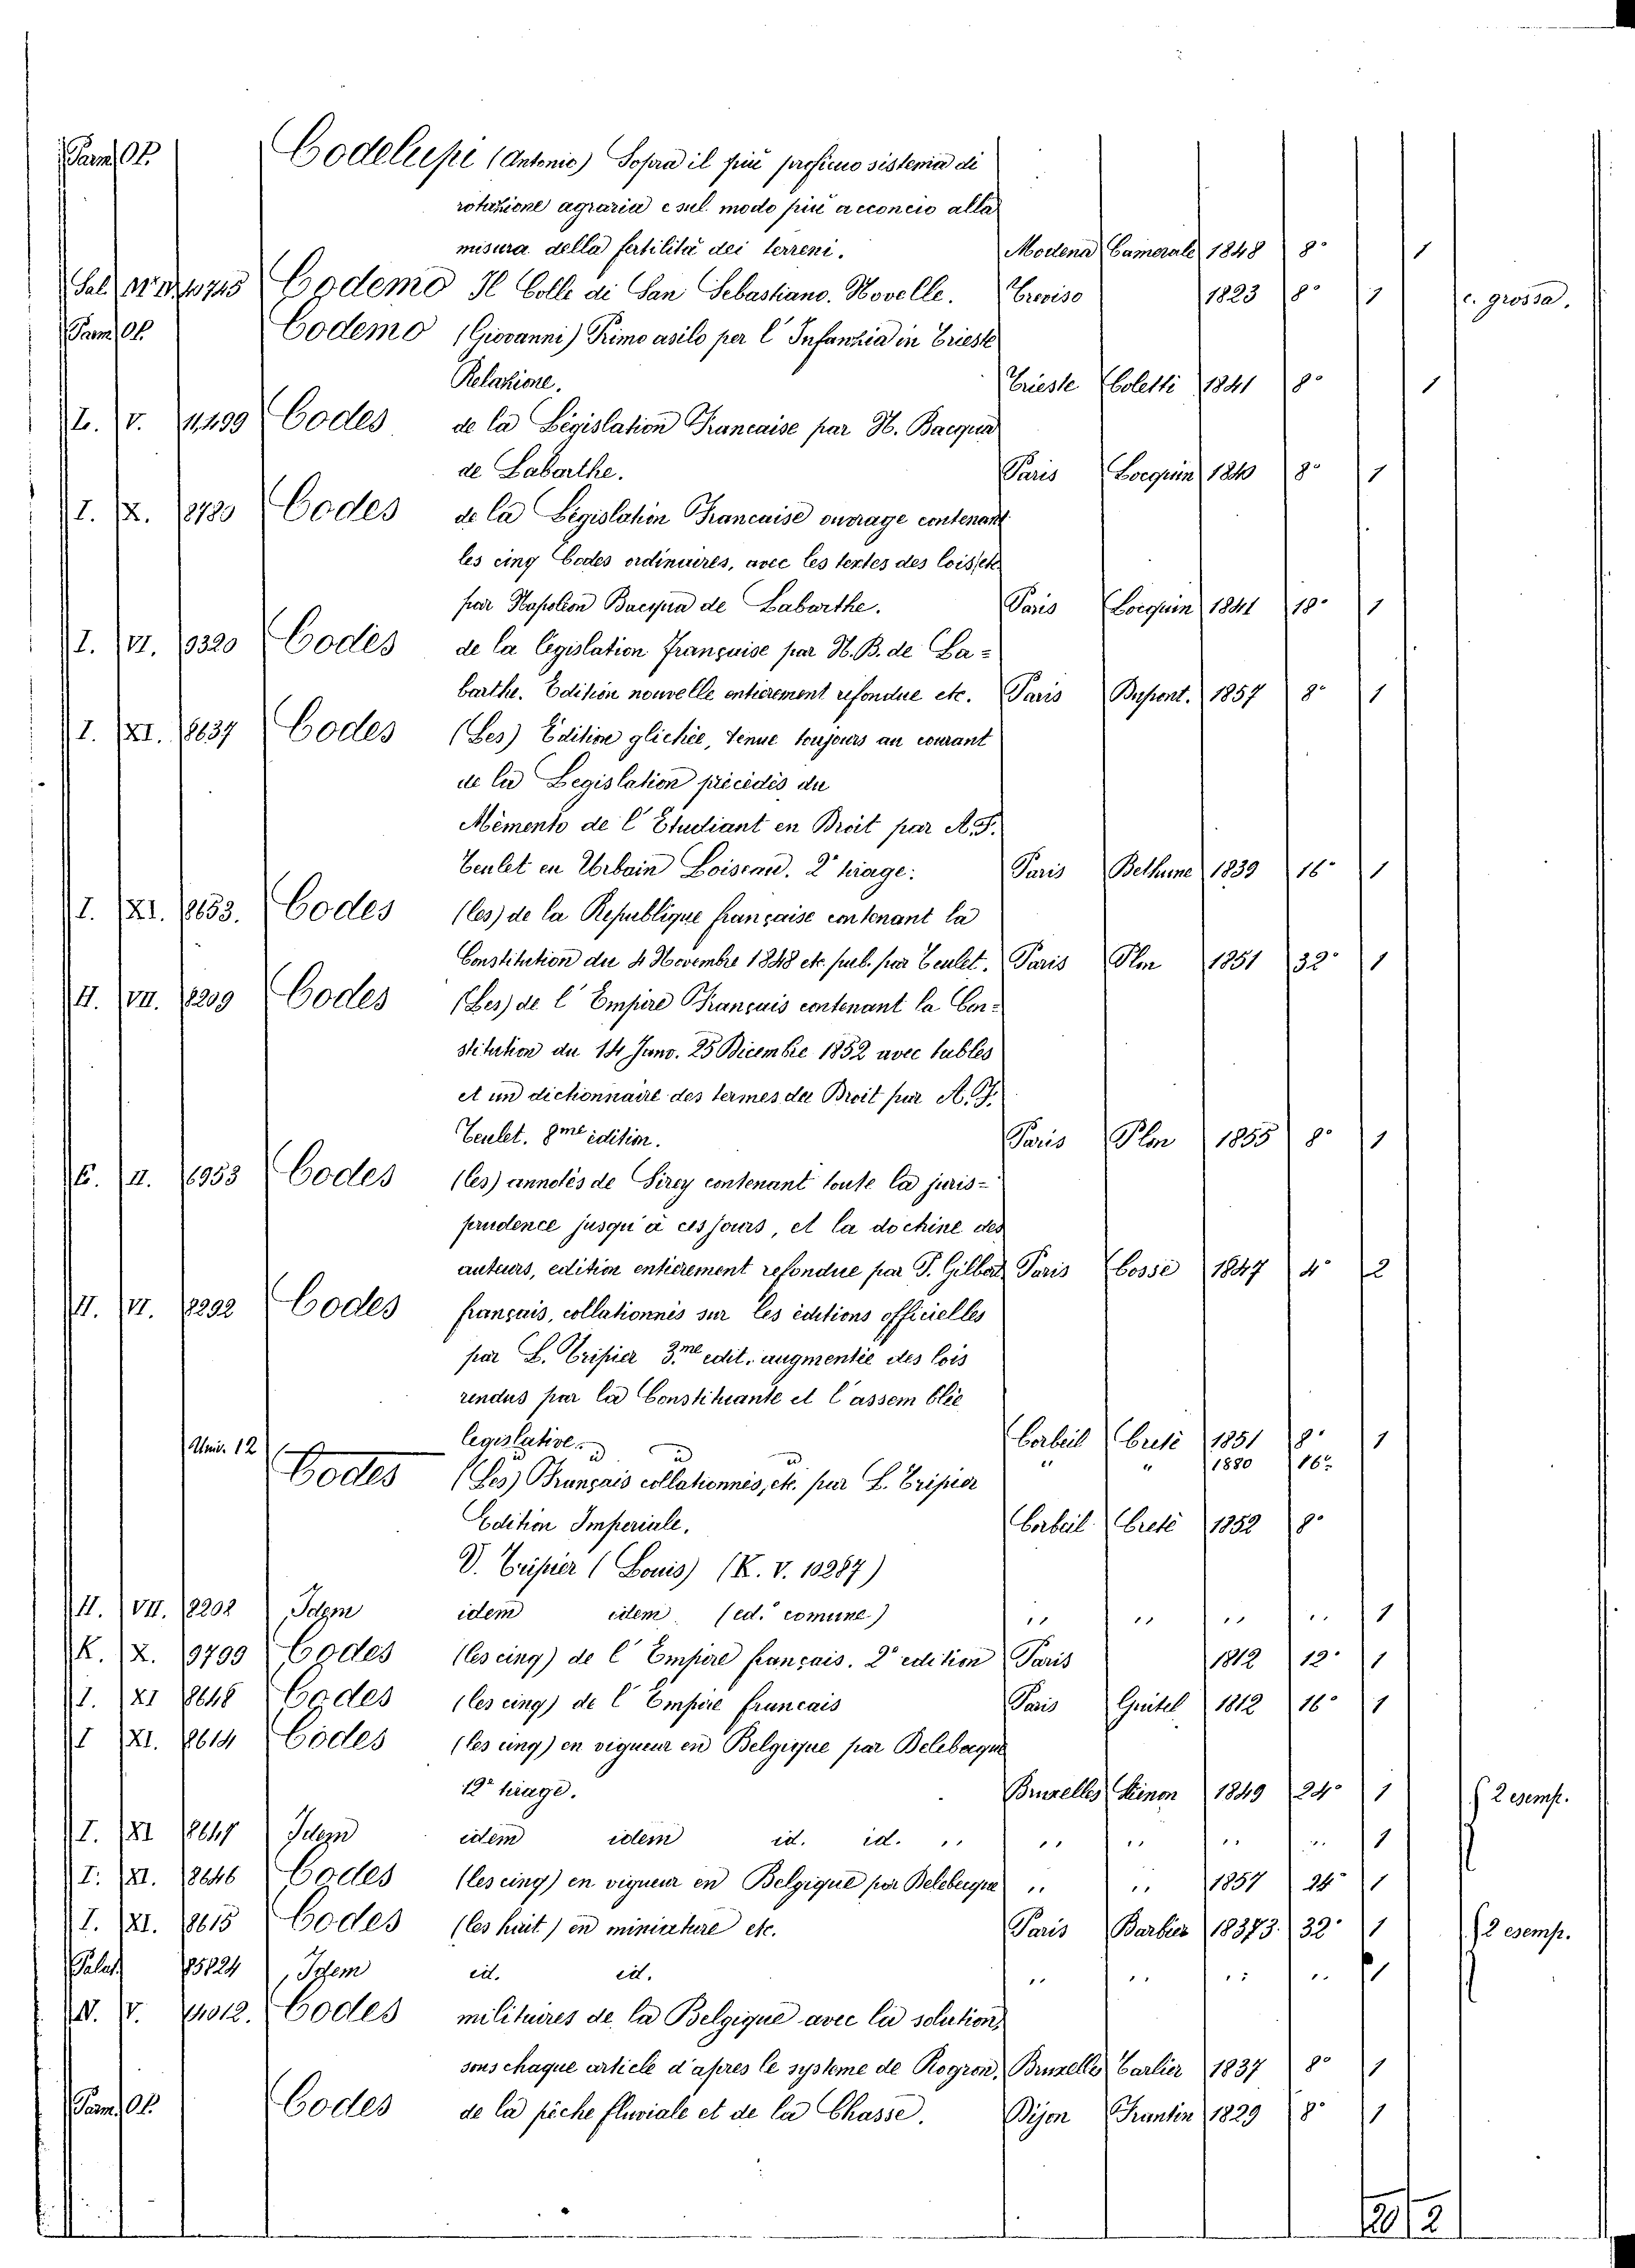 Parm. Op. Codelupi (Antonio) Sopra il più proficuo sistema di
rotazione agraria e sul modo più acconcio alla
misura della fertilità dei terreni. Modena Camerale 1848 8° 1
Sal. 10745 Codemo Il Colle di San Sebastiano. Novelle. Treviso 1823 8° 1 c. grossa.
Parm. Op. Codemo (Giovanni) Primo asilo per l'Infanzia in Trieste
Relazione. Trieste Coletti 1841 8° 1
L. V. 11,499 Codes de la Législation Francaise par N. Bacqua
de Labarthe. Paris Locquin 1840 8° 1
I. X. 8780 Codes de la Législation Francaise ouvrage contenant
les cinq Codes ordinaires, avec les textes des lois, etc.
par Napoléon Bacqua de Labarthe. Paris Locquin 1841 18° 1
I. VI. 9320 Codes de la législation Française par N. B. de La=
barthe. Edition nouvelle entièrement refondue etc. Paris Dupont. 1857 8° 1
I. XI. 8637 Codes (Les) Edition glichée, tenue toujours au courant
de la Legislation précédés du
Mémento de l'Etudiant en Droit par A. F.
Teulet en Urbain Loiseau. 2° tirage: Paris Bethune 1839 16° 1
I. XI. 8653. Codes (les) de la Republique française contenant la
Constitution du 4 Novembre 1848 etc. pub. par Teulet. Paris Plon 1851 32° 1
II. VII. 8209 Codes (Les) de l'Empire Français contenant la Con=
stitution du 14 Janv. 25 Dicembre 1852 avec tables
et un dictionnaire des termes du Droit par A. F.
Teulet. 8me édition. Paris Plon 1855 8° 1
E. II. 6953 Codes (les) annotés de Sirey contenant toute la juris=
prudence jusqu'à ces jours, et la doctrine des
auteurs, edition entièrement refondue par P. Gilbert Paris Cosse 1847 4° 2
II. VI. 8292 Codes français, collationnés sur les éditions officielles
par L. Tripier 3.me edit. augmentée des lois
rendus par la Constituante et l'assemblée
legislative. Corbeil Creté 1851 8° 1
Univ. 12 " " 1880 16°
Codes (Les) Français collationnés, etc. par L. Tripier
Edition Imperiale. Corbeil Creté 1852 8°
V. Tripier (Louis) (K. V. 10287)
II. VII. 8202 Idem idem idem (ed. comune) " " " " 1
K. X. 9799 Codes (les cinq) de l'Empire français. 2° edition Paris 1812 12° 1
I. XI 8648 Codes (les cinq) de l'Empire francais Paris 1812 16° 1
I XI. 8614 Codes (les cinq) en vigueur en Belgique par Delebecque
12° tirage. Bruxelles 1849 24° 1 2 esemp.
I. XI 8647 Idem idem idem id. id. " " " " " 1
I. XI. 8646 Codes (les cinq) en vigueur en Belgique par Delebecque " " 1857 24° 1
I. XI. 8615 Codes (les huit) en miniature etc. Paris Barbier 18373. 32° 1 2 esemp.
Palat. 15824 Idem id. id. " " " " 1
N. V. 14012. Codes militaires de la Belgique avec la solution,
sous chaque article d'apres le systeme de Rogron, Bruxelles Carlier 1837 8° 1
Parm. Op. Codes de la pêche fluviale et de la Chasse. Dijon Frantin 1829 8° 1
20 2